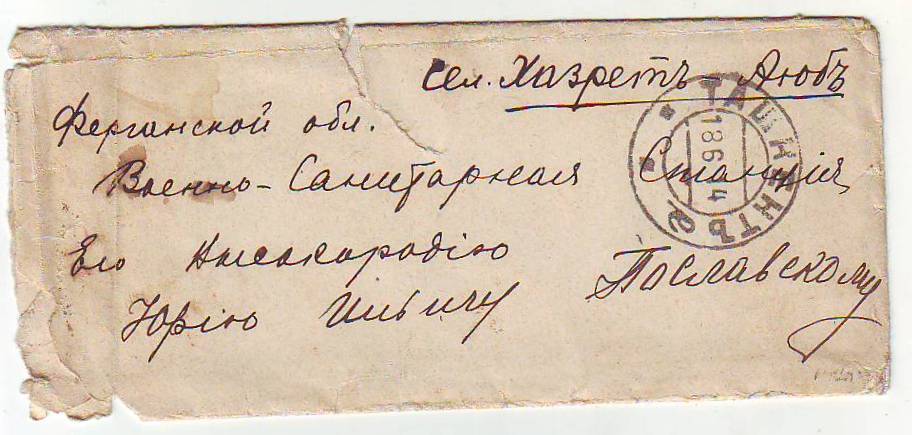 сел. Хазретъ-Аюбъ
Ферганской обл.
Военно-Санитарная Станція
Его Высокородію
Юрію Ильичу Пославскому
ТАШКЕНТЪ
18 6 14